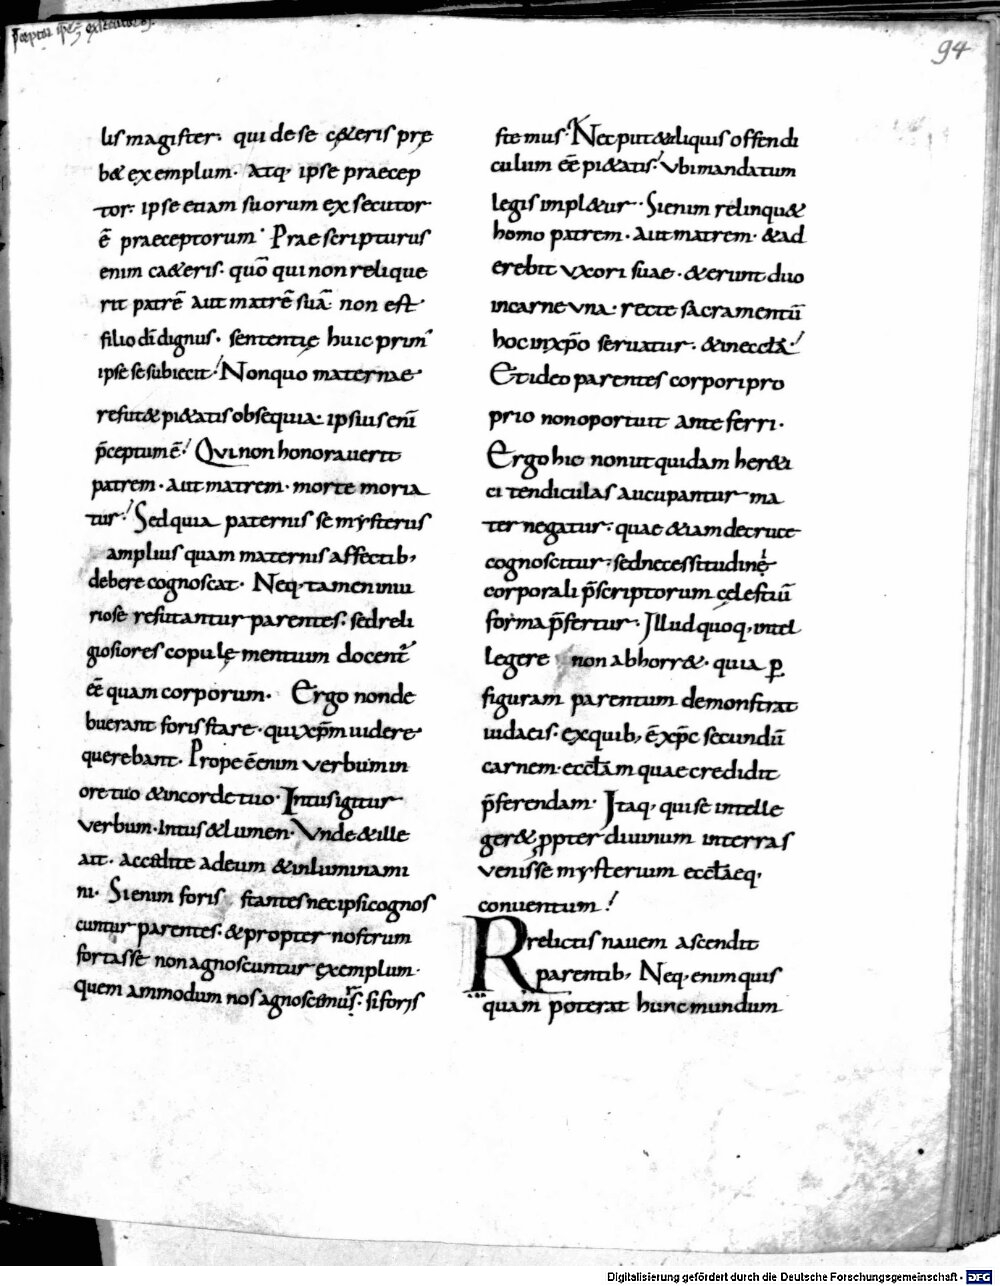 94
lis magister· qui de se c&eris prę
b& exemplum· Atq; ipse praecep
tor· ipse etiam suorum exsecutor
ē praeceptorum· Prae scripturus
enim ca&eris· quō qui non relique
rit patrē aut matrē suā· non est
filio dī dignus· sententię huic prim̄
ipse se subiecit! Non quo maternae
refut& pi&atis obsequia· ipsius enī
p̄ceptum ē! Qui non honorauerit
patrem· aut matrem· morte moria
tur! Sed quia paternis se mysteriis
amplius quam maternis affectib;
debere cognoscat· Neq; tamen iniu
riose refutantur parentes· sed reli
giosiores copulę mentium docent̄
ēē quam corporum· Ergo non de
buerant foris stare· qui xp̄m uidere
querebant· Prope ē enim verbum in
ore tuo & in corde tuo· Intus igitur
verbum· Intus & lumen· Vnde & ille
ait· accedite ad eum & inluminami
ni· Si enim foris stantes nec ipsi cognos
cuntur parentes· & propter nostrum
fortasse non agnoscuntur exemplum·
quem ammodum nos agnoscimur· si foris
stemus· Nec put& aliquis offendi
culum ēē pi&atis! Vbi mandatum
legis impl&ur· Si enim relinqu&
homo patrem· aut matrem· & ad
erebit vxori suae· & erunt duo
in carne vna· recte sacramentū
hoc in xp̄o seruatur· & in eccl̄a!
Et ideo parentes corpori pro
prio non oportuit anteferri·
Ergo hic non ut quidam her&i
ci tendiculas aucupantur ma
ter negatur· quae &iam de cruce
cognoscitur· sed necessitudinę
corporali p̄scriptorum cęlestiū
forma p̄fertur· Illud quoq; intel
legere non abhorr&· quia p
figuram parentum demonstrat
iudaeis· ex quib; ē xp̄c secundū
carnem· eccl̄am quae credidit
p̄ferendam· Itaq; qui se intelle
ger& ppter diuinum in terras
venisse mysterium eccl̄aeq;
conuentum!
Relictis nauem ascendit
parentib; Neq; enim quis
quam poterat hunc mundum
Digitalisierung gefördert durch die Deutsche Forschungsgemeinschaft - DFG